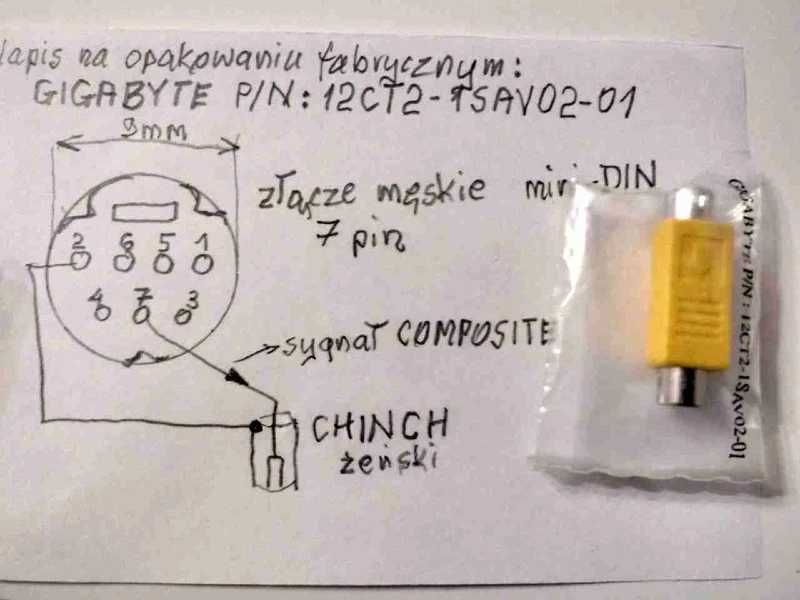 Napis na opakowaniu fabrycznym:
GIGABYTE P/N: 12CT2-1SAV02-01
9mm
złącze męskie mini-DIN
7 pin
2 6 5 1
4 7 3
sygnał COMPOSITE
CHINCH
żeński
GIGABYTE P/N : 12CT2-1SAV02-01